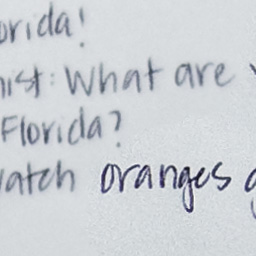 orida!
nist: What are
Florida?
watch oranges g